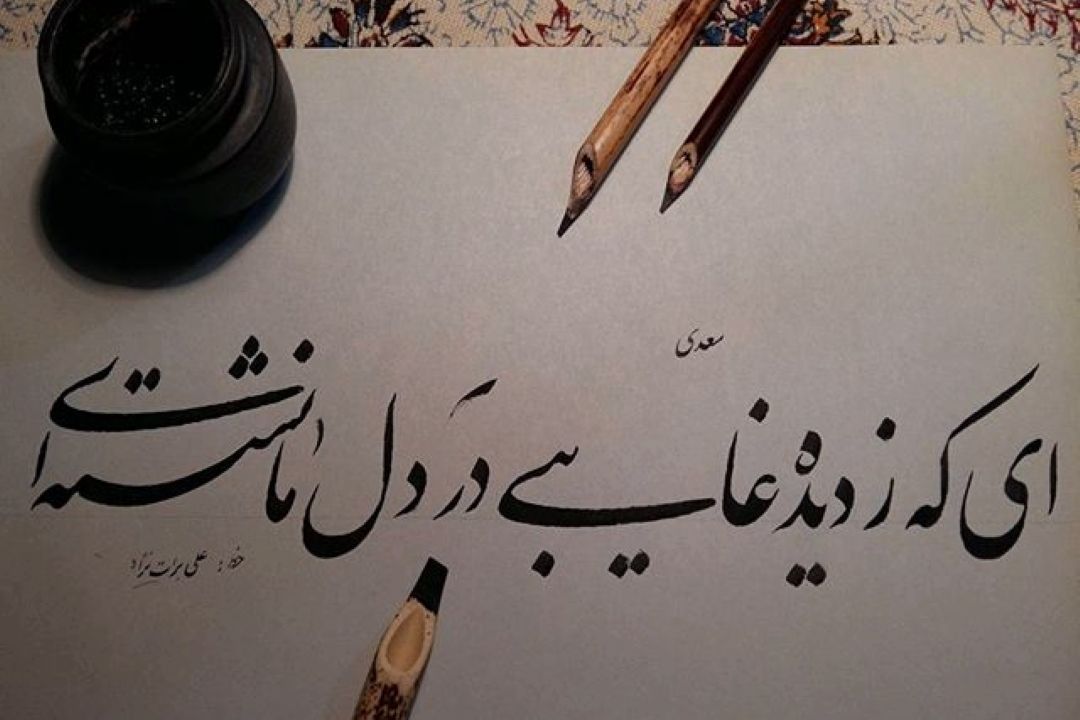 سعدی
ای که ز دیده غایبی در دل ما نشسته‌ای
خط: علی برات نژاد